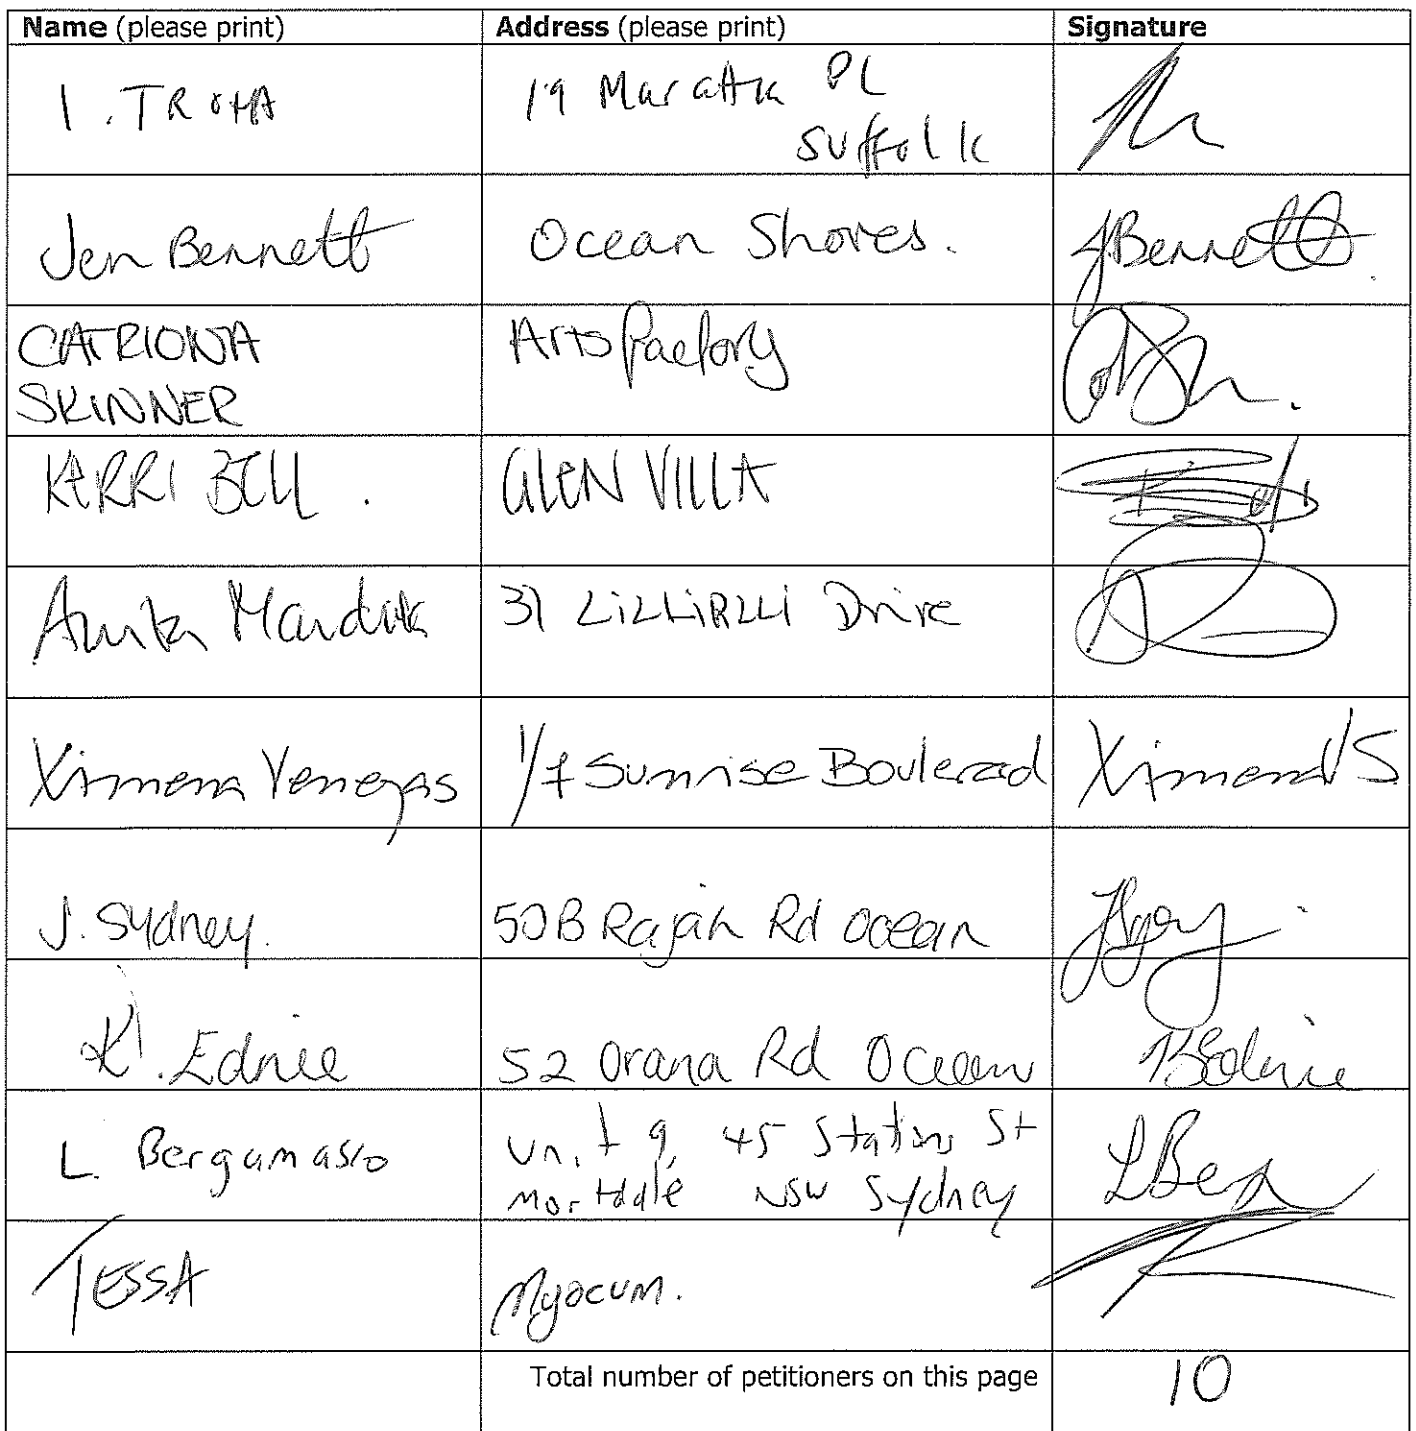 Name (please print) Address (please print) Signature
I. TROHA 19 Maratta PL
Suffolk
Jen Bennett Ocean Shores. JBennett.
CATRIONA Arts factory
SKINNER
KERRI BELL. GLEN VILLA
Anita 31 Drive
Ximena Venegas 1/7 Sunrise Boulevard XimenaVS
J. Sydney. 50B Rajah Rd ocean
K. Ednie 52 Orana Rd Ocean BEdnie
L. Bergamasco Unit 9, 45 Station St LBerg
Mortdale NSW Sydney
TESSA Myocum.
Total number of petitioners on this page 10